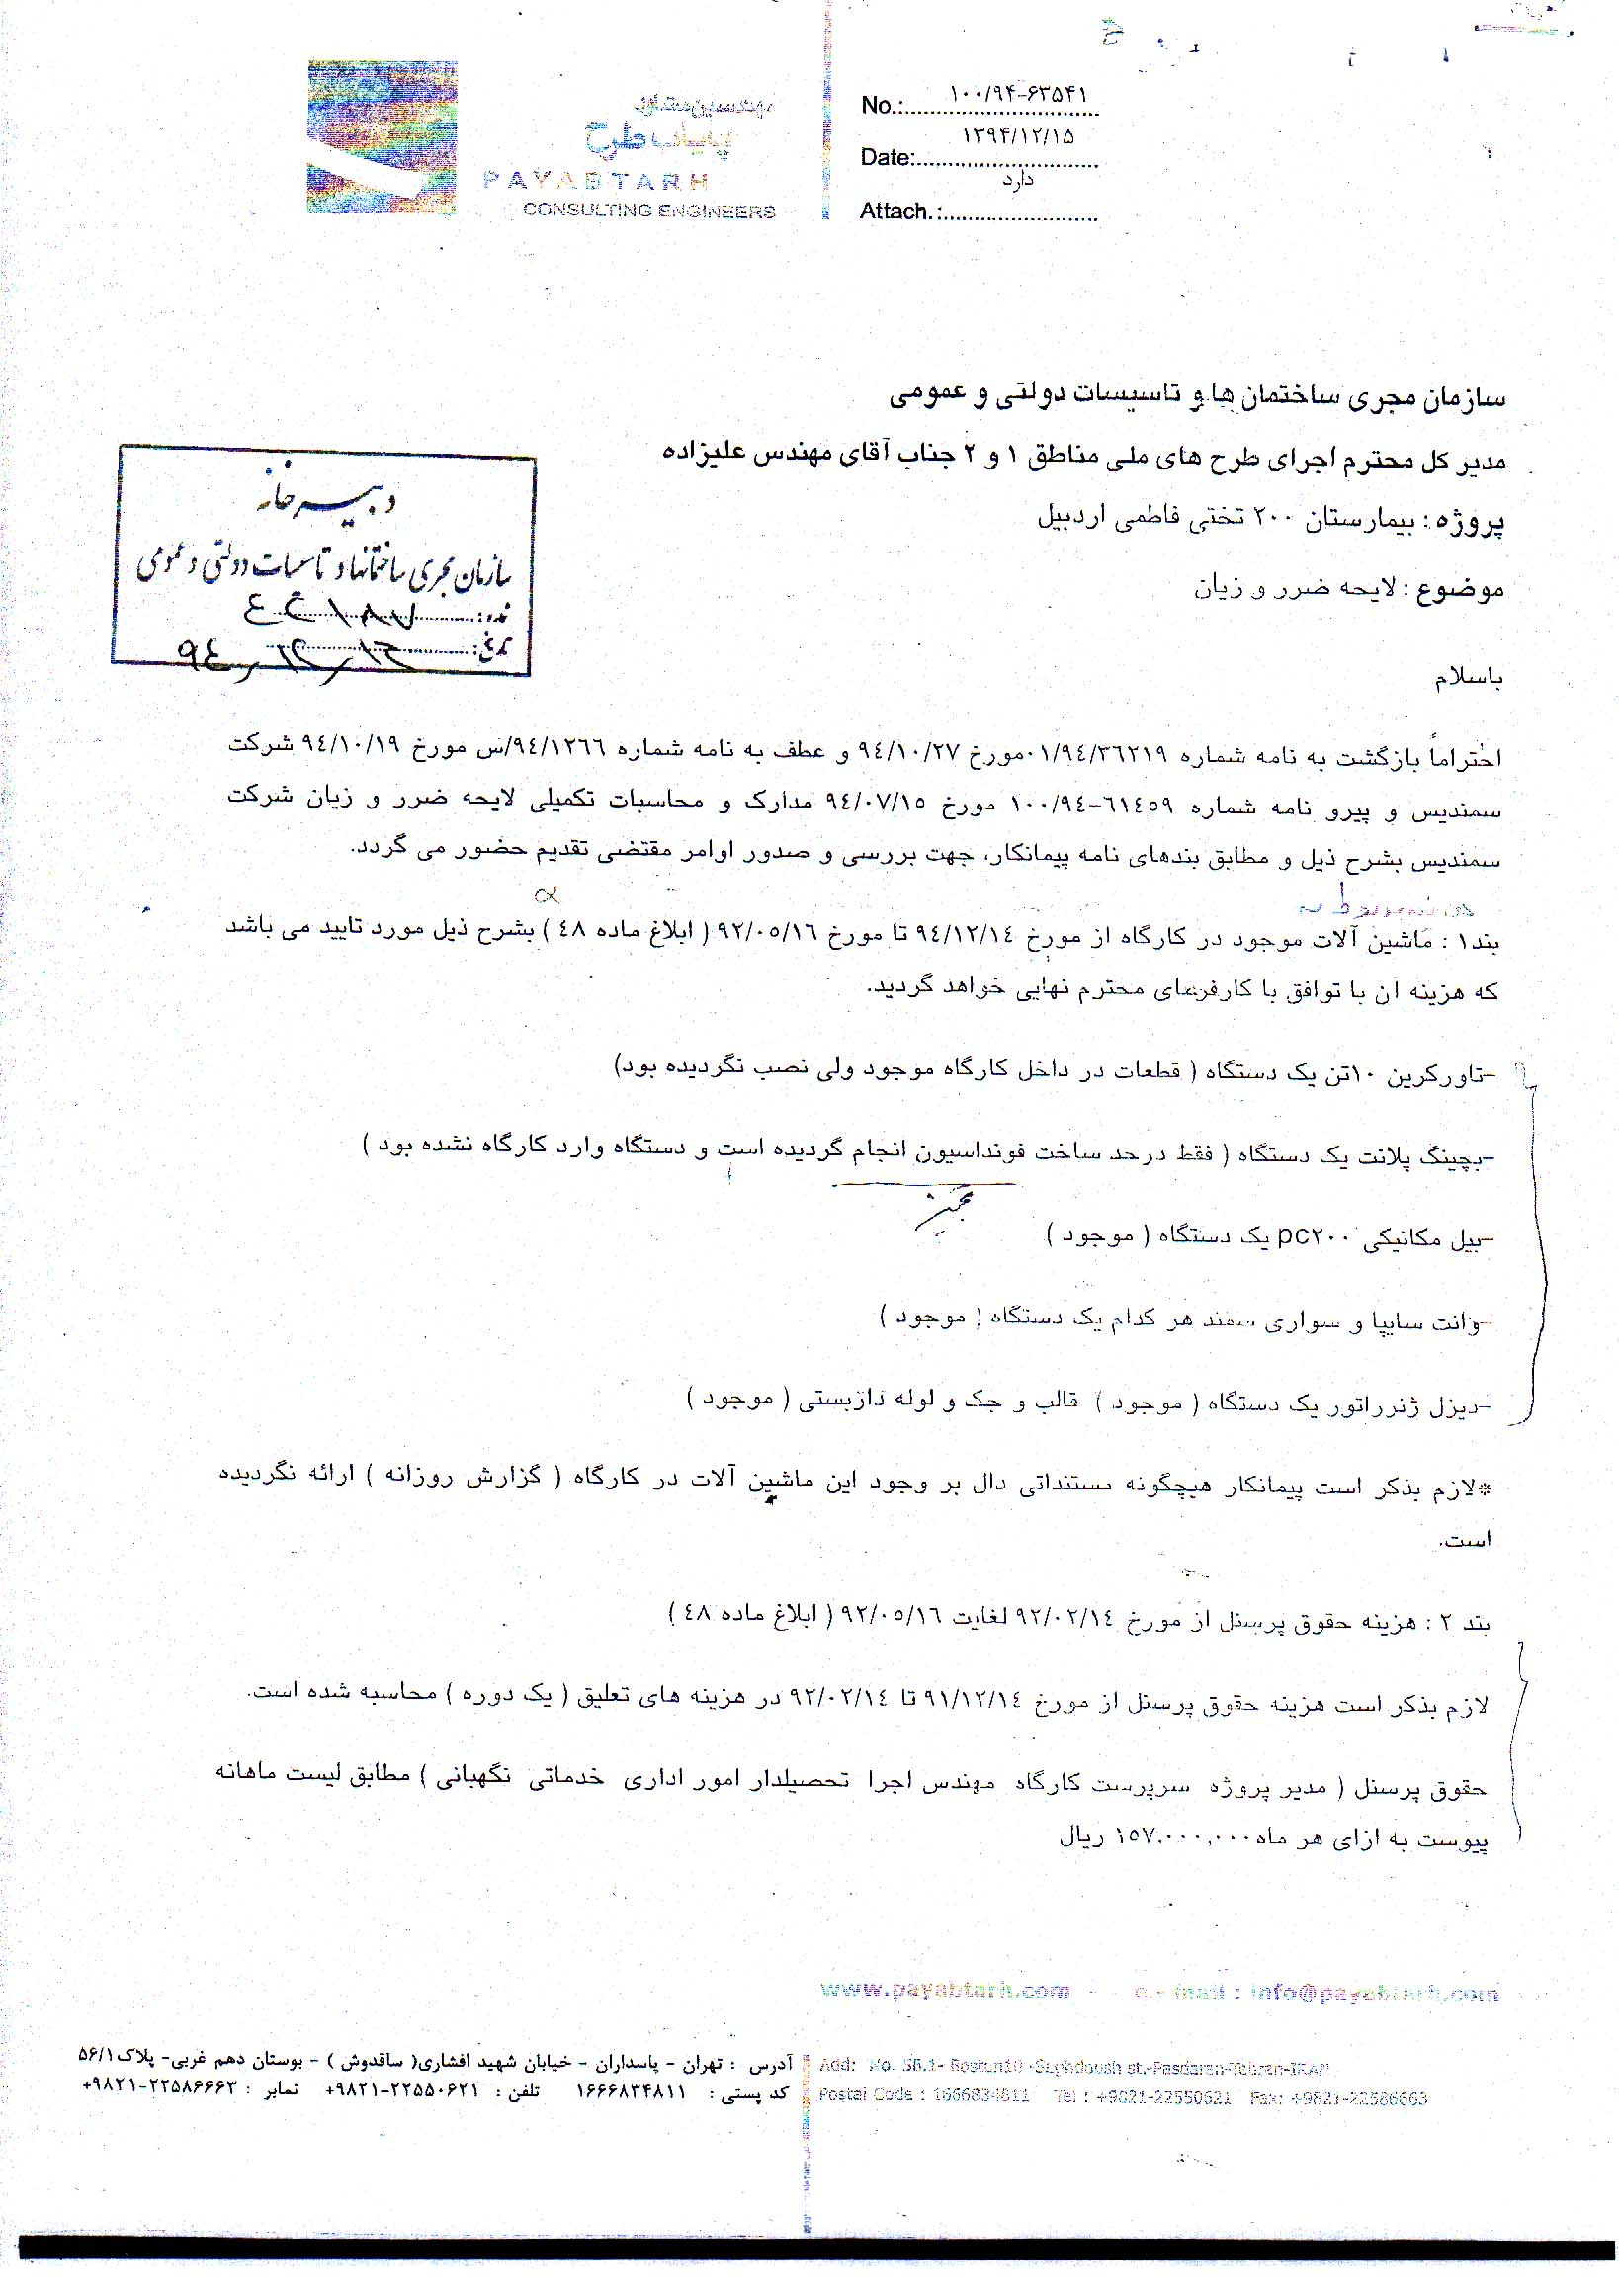 مهندسین مشاور
پایاب طرح
PAYABTARH
CONSULTING ENGINEERS
No.: ۱۰۰/۹۴-۶۳۵۴۱
Date: ۱۳۹۴/۱۲/۱۵
Attach.: دارد
سازمان مجری ساختمان ها و تاسیسات دولتی و عمومی
مدیر کل محترم اجرای طرح های ملی مناطق ۱ و ۲ جناب آقای مهندس علیزاده
پروژه : بیمارستان ۲۰۰ تختی فاطمی اردبیل
موضوع : لایحه ضرر و زیان
دبیرخانه
سازمان مجری ساختمانها و تاسیسات دولتی و عمومی
شماره:
تاریخ:
باسلام
احتراماً بازگشت به نامه شماره ۰۱/۹٤/۳٦۲۱۹مورخ ۹٤/۱۰/۲۷ و عطف به نامه شماره ۹٤/۱۲٦٦/س مورخ ۹٤/۱۰/۱۹ شرکت
سمندیس و پیرو نامه شماره ٦۱٤٥۹-۱۰۰/۹٤ مورخ ۹٤/۰۷/۱٥ مدارک و محاسبات تکمیلی لایحه ضرر و زیان شرکت
سمندیس بشرح ذیل و مطابق بندهای نامه پیمانکار، جهت بررسی و صدور اوامر مقتضی تقدیم حضور می گردد.
بند۱ : ماشین آلات موجود در کارگاه از مورخ ۹٤/۱۲/۱٤ تا مورخ ۹۲/۰٥/۱٦ ( ابلاغ ماده ٤۸ ) بشرح ذیل مورد تایید می باشد
که هزینه آن با توافق با کارفرمای محترم نهایی خواهد گردید.
-تاورکرین ۱۰تن یک دستگاه ( قطعات در داخل کارگاه موجود ولی نصب نگردیده بود)
-بچینگ پلانت یک دستگاه ( فقط درحد ساخت فونداسیون انجام گردیده است و دستگاه وارد کارگاه نشده بود )
-بیل مکانیکی pc۲۰۰ یک دستگاه ( موجود )
-وانت سایپا و سواری سمند هر کدام یک دستگاه ( موجود )
-دیزل ژنرراتور یک دستگاه ( موجود ) قالب و جک و لوله داربستی ( موجود )
*لازم بذکر است پیمانکار هیچگونه مستنداتی دال بر وجود این ماشین آلات در کارگاه ( گزارش روزانه ) ارائه نگردیده
است.
بند ۲ : هزینه حقوق پرسنل از مورخ ۹۲/۰۲/۱٤ لغایت ۹۲/۰٥/۱٦ ( ابلاغ ماده ٤۸ )
لازم بذکر است هزینه حقوق پرسنل از مورخ ۹۱/۱۲/۱٤ تا ۹۲/۰۲/۱٤ در هزینه های تعلیق ( یک دوره ) محاسبه شده است.
حقوق پرسنل ( مدیر پروژه سرپرست کارگاه مهندس اجرا تحصیلدار امور اداری خدماتی نگهبانی ) مطابق لیست ماهانه
پیوست به ازای هر ماه ۱٥۷.۰۰۰,۰۰۰ ریال
www.payabtarh.com - e.- mail : info@payabtarh.com
آدرس : تهران - پاسداران - خیابان شهید افشاری( ساقدوش ) - بوستان دهم غربی- پلاک۵۶/۱
کد پستی : ۱۶۶۶۸۳۴۸۱۱ تلفن : ۲۲۵۵۰۶۲۱-۹۸۲۱+ نمابر : ۲۲۵۸۶۶۶۳-۹۸۲۱+
Add: No. 56.1- Bostan10 -Saghdoush st.-Pasdaran-Tehran-IRAN
Postal Code : 1666834811 Tel : +9821-22550621 Fax: +9821-22586663